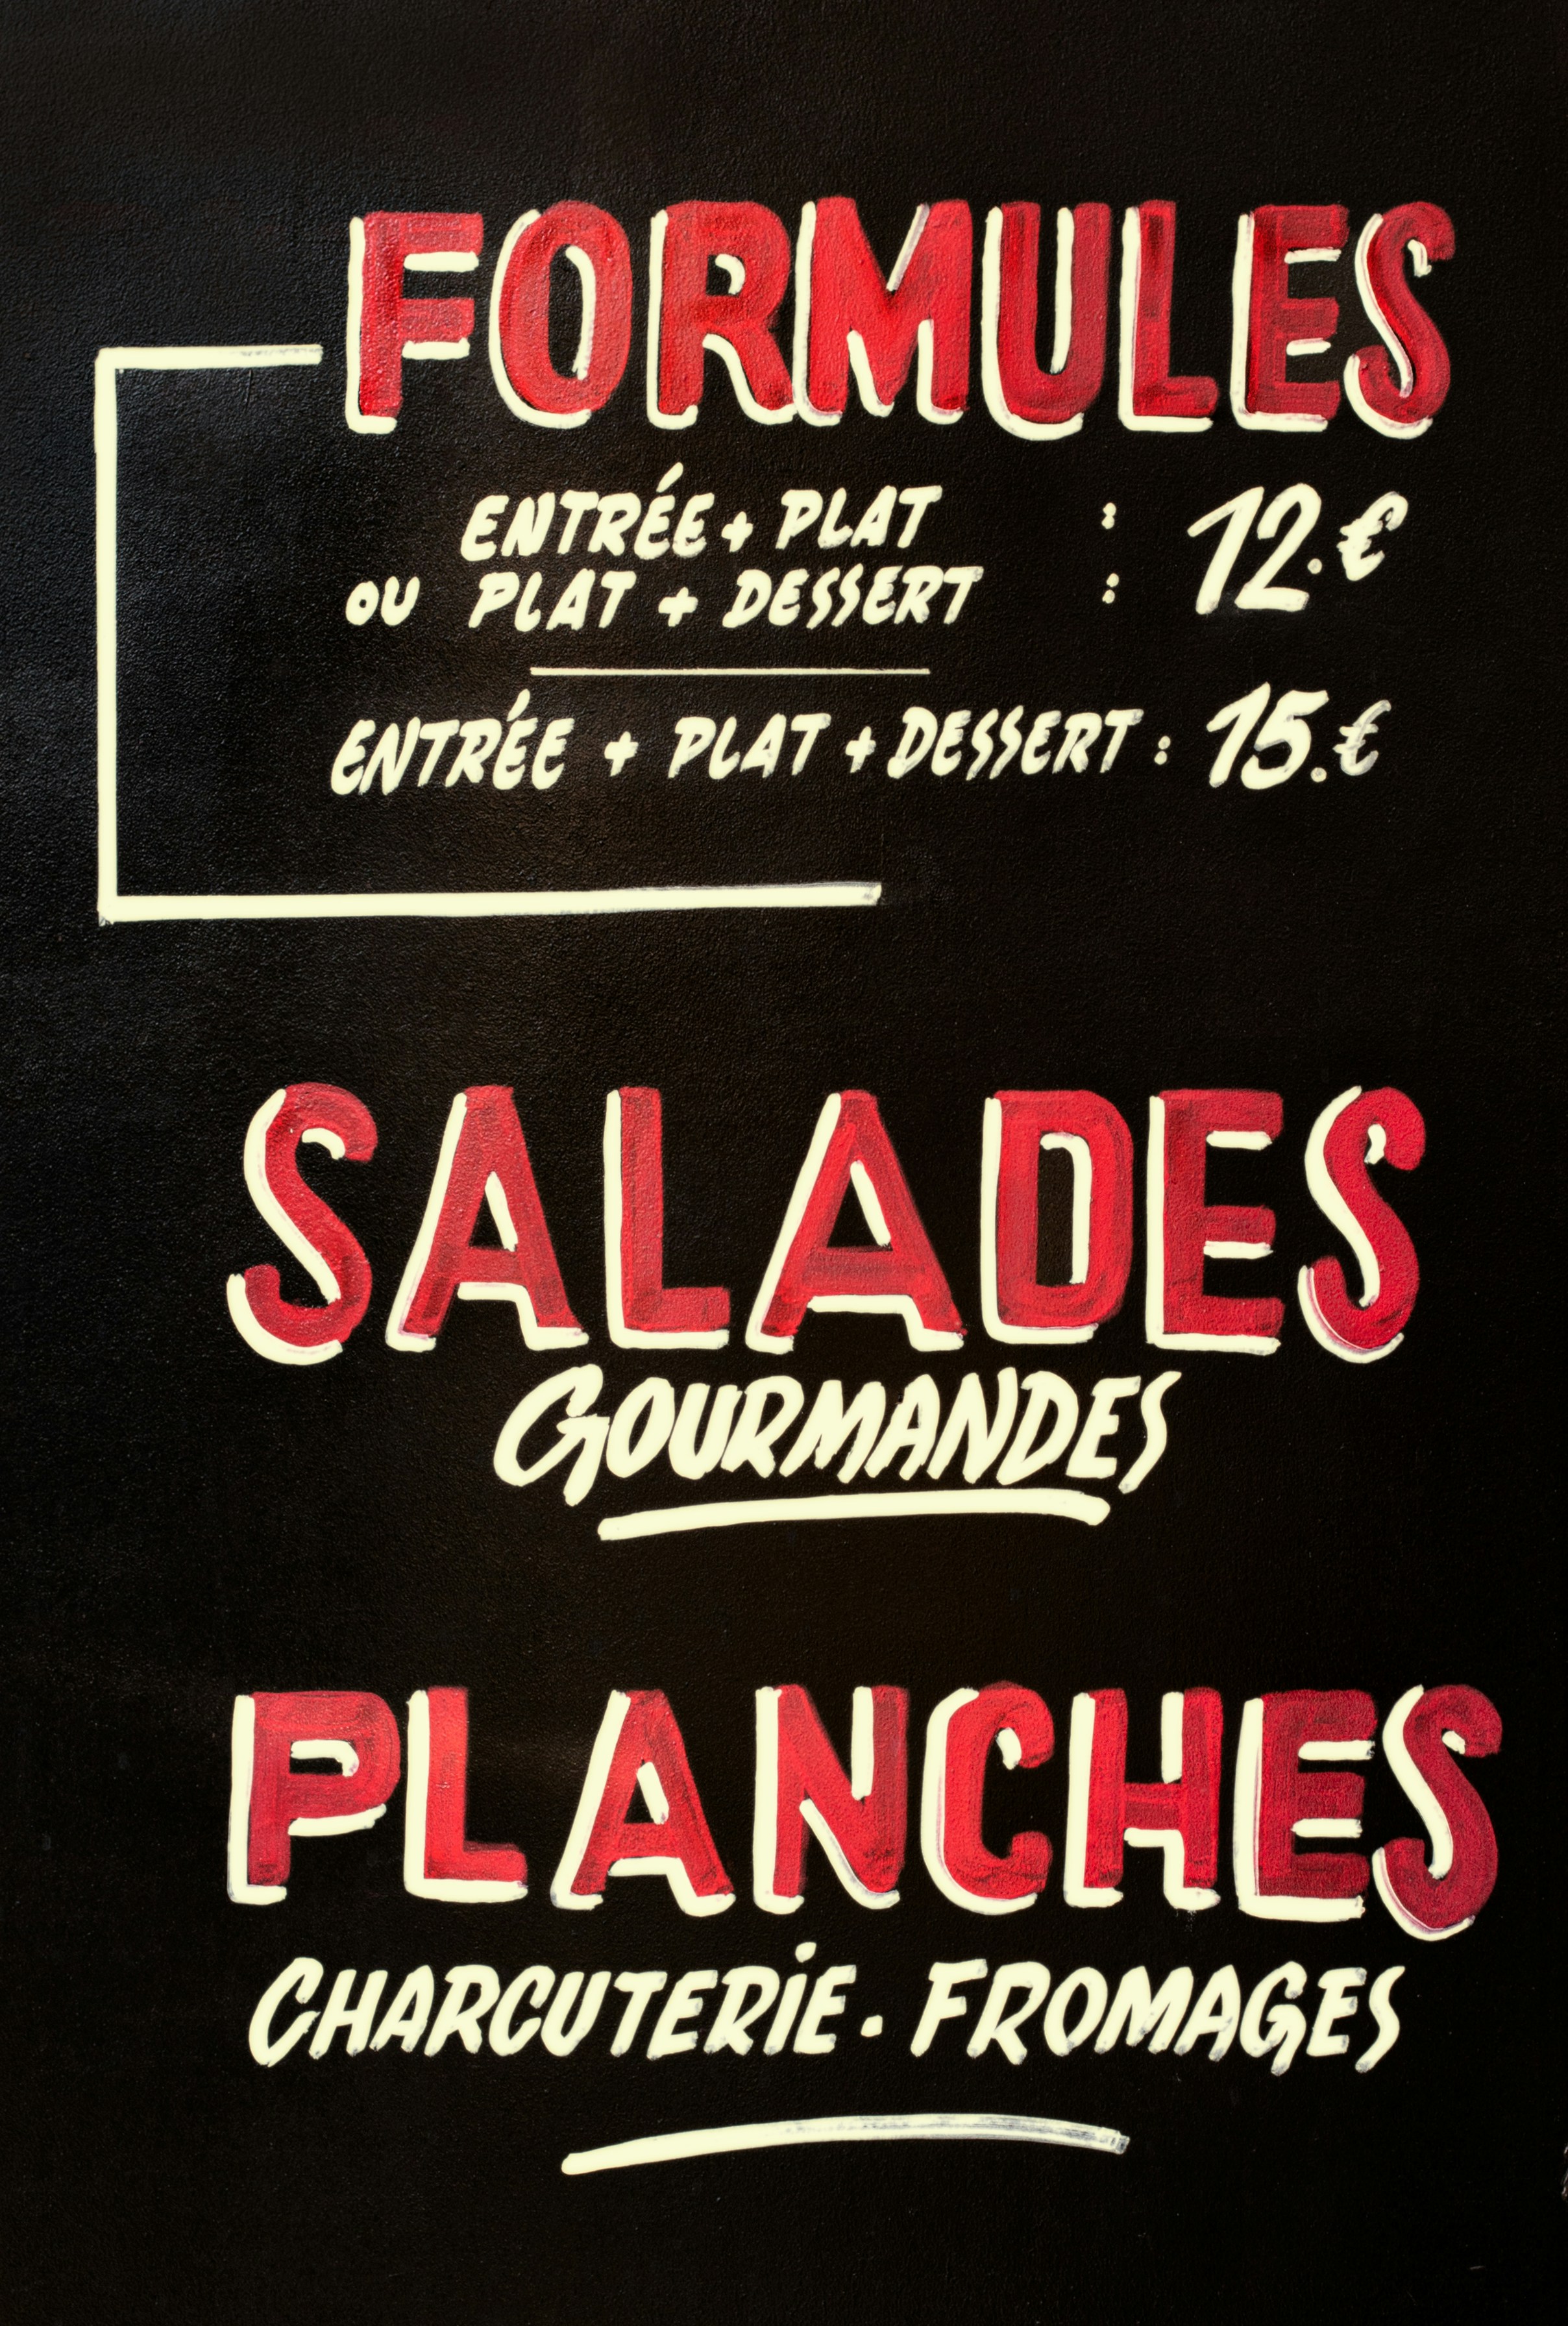 FORMULES
ENTRÉE + PLAT : 12.€
OU PLAT + DESSERT :
ENTRÉE + PLAT + DESSERT : 15.€
SALADES
GOURMANDES
PLANCHES
CHARCUTERIE . FROMAGES